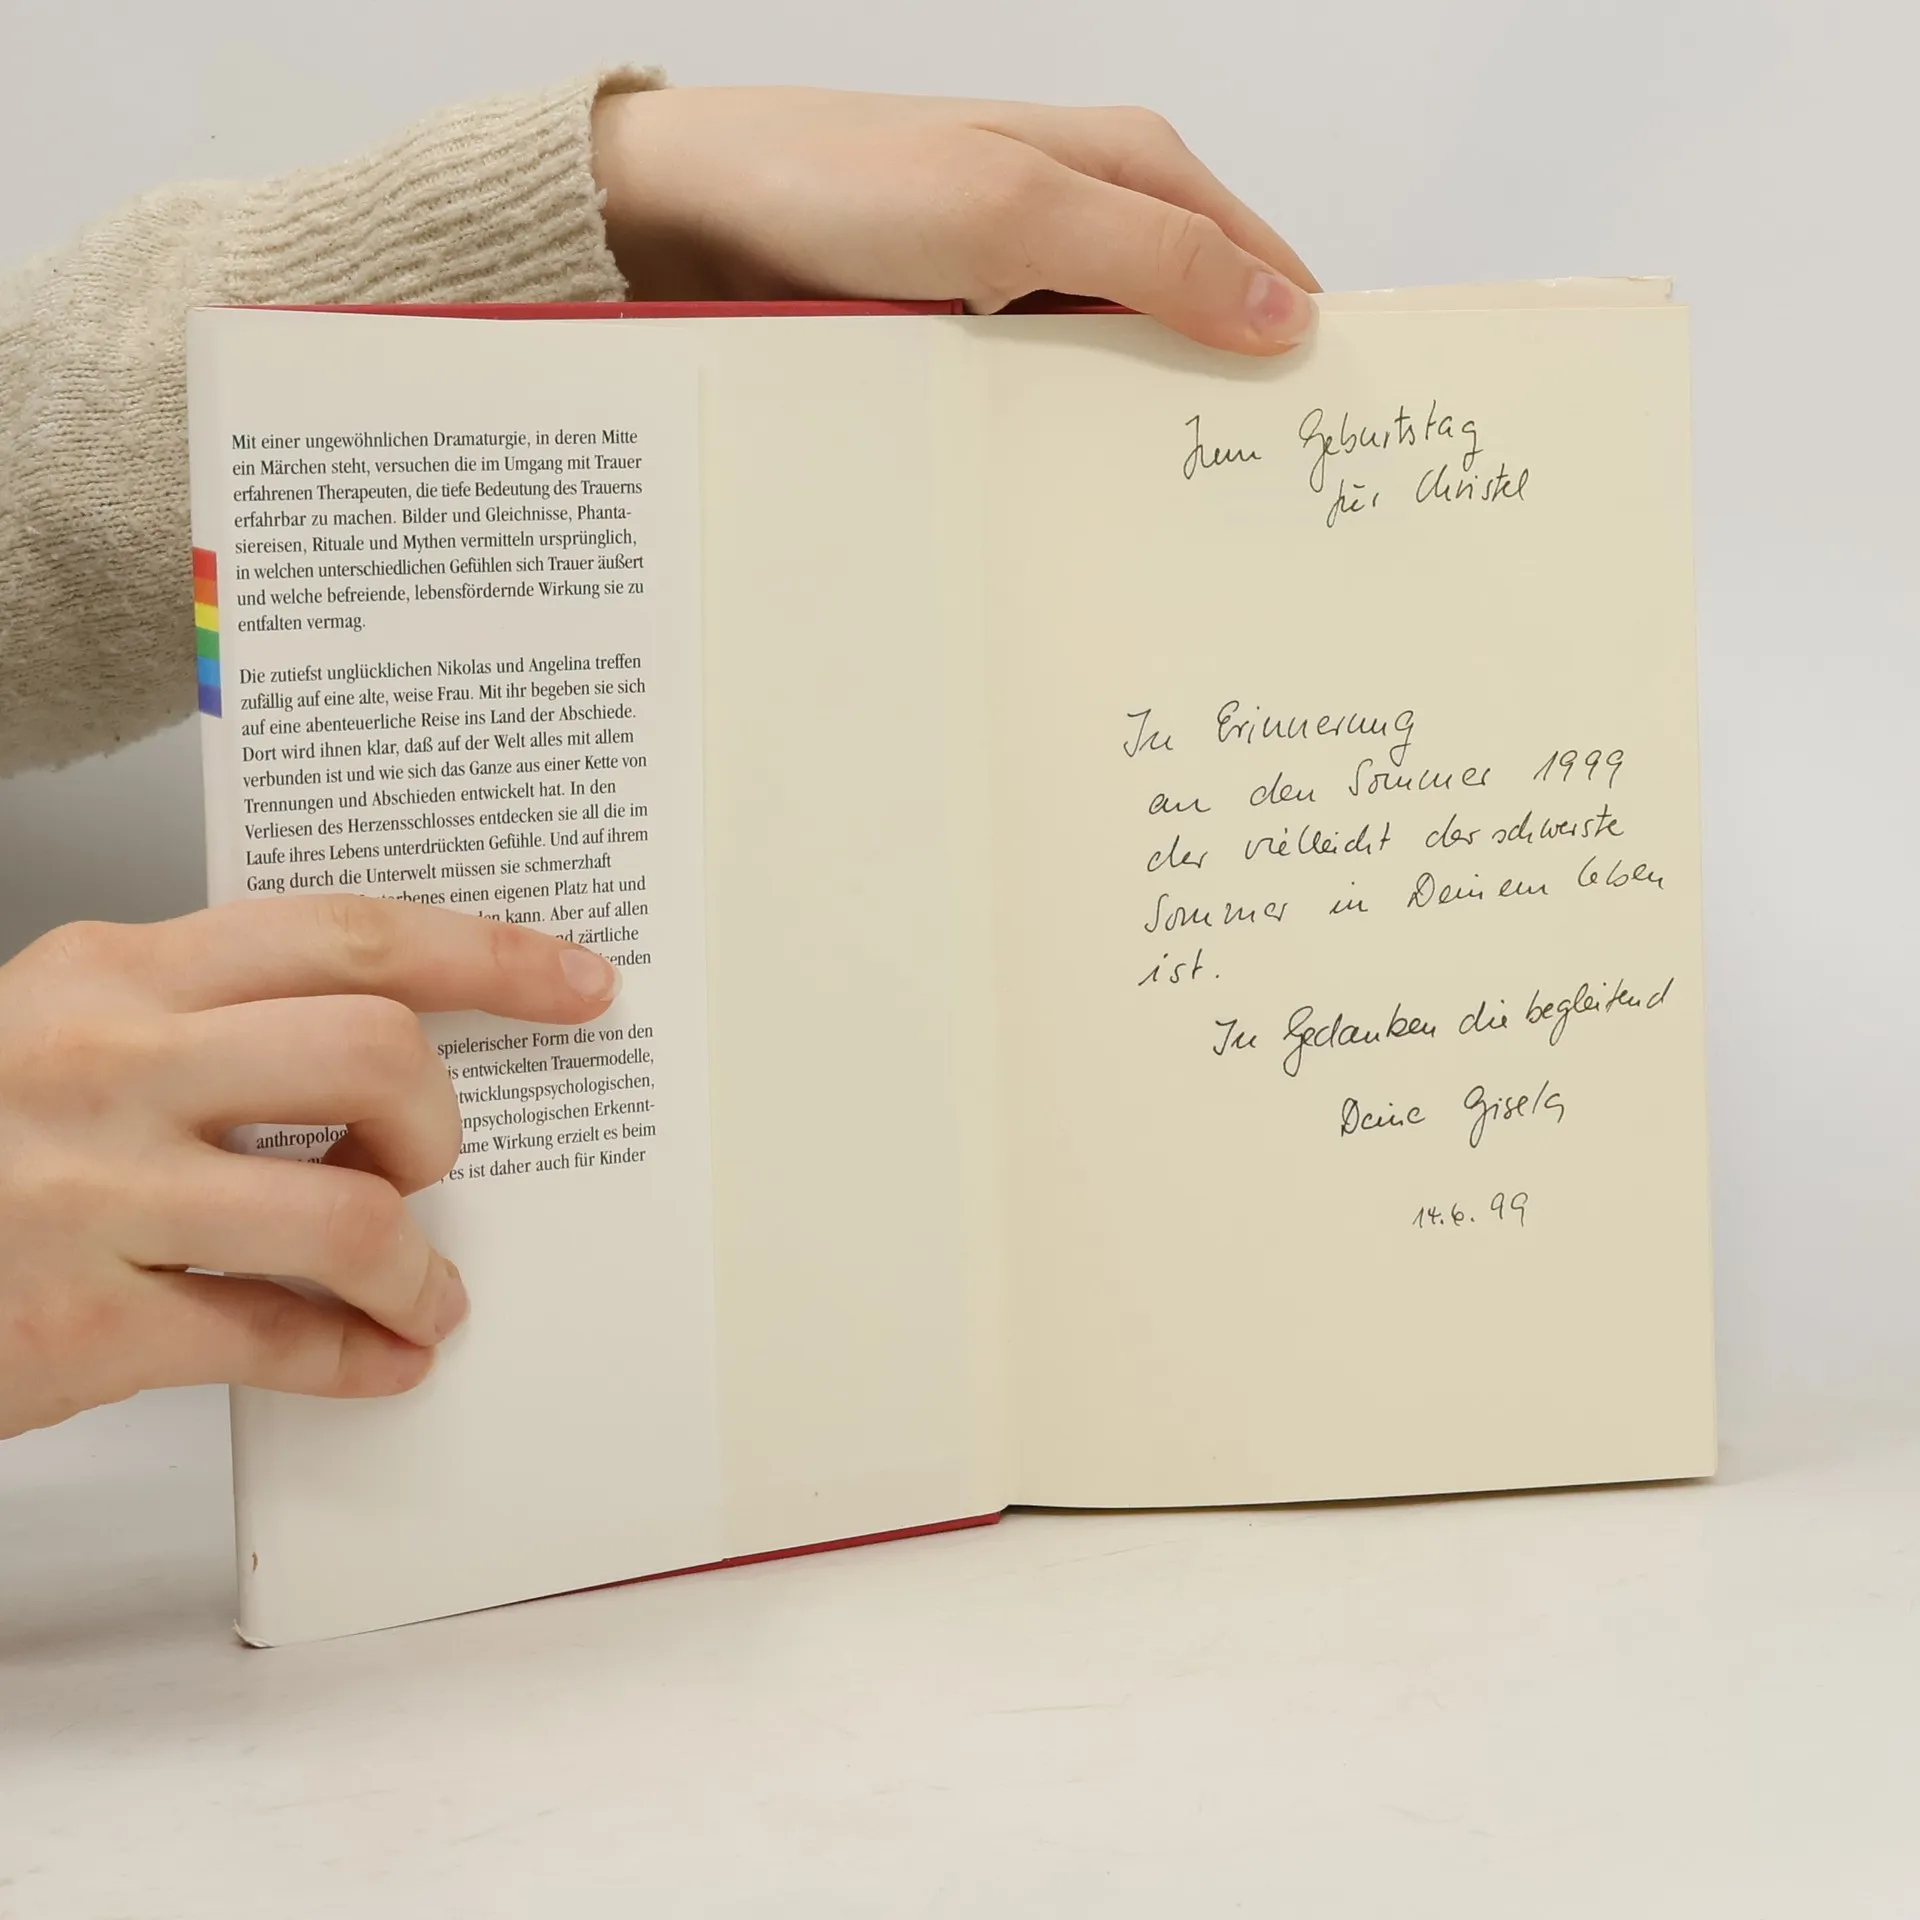 Mit einer ungewöhnlichen Dramaturgie, in deren Mitte
ein Märchen steht, versuchen die im Umgang mit Trauer
erfahrenen Therapeuten, die tiefe Bedeutung des Trauerns
erfahrbar zu machen. Bilder und Gleichnisse, Phanta-
siereisen, Rituale und Mythen vermitteln ursprünglich,
in welchen unterschiedlichen Gefühlen sich Trauer äußert
und welche befreiende, lebensfördernde Wirkung sie zu
entfalten vermag.
Die zutiefst unglücklichen Nikolas und Angelina treffen
zufällig auf eine alte, weise Frau. Mit ihr begeben sie sich
auf eine abenteuerliche Reise ins Land der Abschiede.
Dort wird ihnen klar, daß auf der Welt alles mit allem
verbunden ist und wie sich das Ganze aus einer Kette von
Trennungen und Abschieden entwickelt hat. In den
Verliesen des Herzensschlosses entdecken sie all die im
Laufe ihres Lebens unterdrückten Gefühle. Und auf ihrem
Gang durch die Unterwelt müssen sie schmerzhaft
einen eigenen Platz hat und
kann. Aber auf allen
zärtliche
spielerischer Form die von den
entwickelten Trauermodelle,
twicklungspsychologischen,
npsychologischen Erkennt-
anthropolog
ame Wirkung erzielt es beim
es ist daher auch für Kinder
Zum Geburtstag
für Christel
In Erinnerung
an den Sommer 1999
der vielleicht der schwerste
Sommer in Deinem Leben
ist.
In Gedanken die begleitend
Deine Gisela
14.6.99